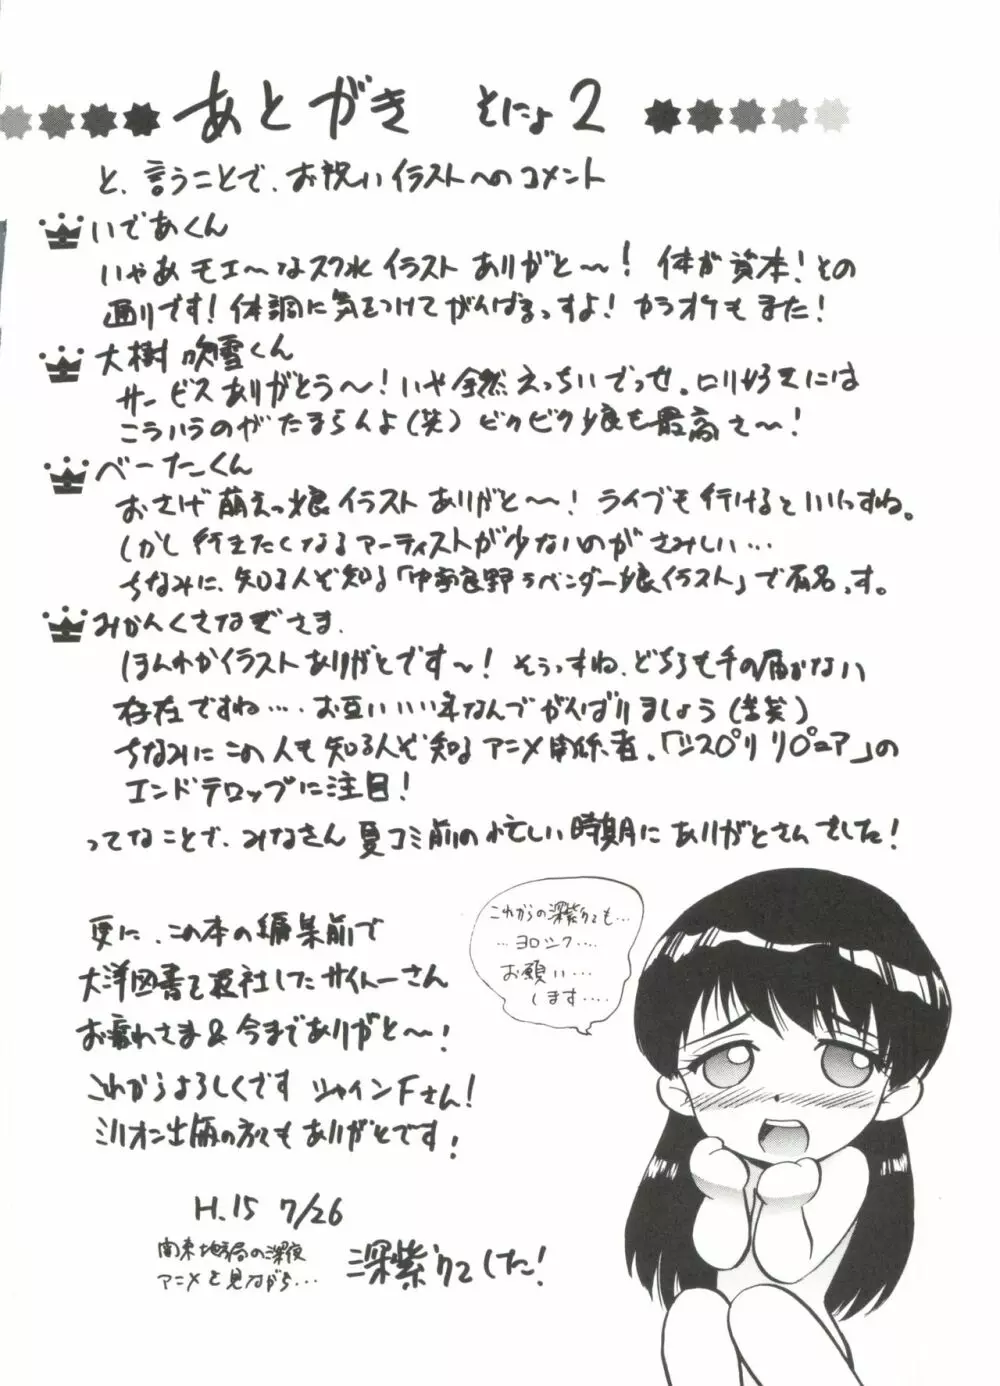 あとがき そにょ2
と、言うことで、お祝いイラストへのコメント
いであくん
いやあモエ〜なスク水イラストありがと〜！ 体が資本！その
通りです！体調に気をつけてがんばるっすよ！カラオケもまた！
大樹吹雪くん
サービスありがとう〜！いや全然えっちいでっせ。ロリ好きには
こういうのがたまらんよ(笑) ビクビク少娘も最高さ〜！
べーたくん
おさげ萌えっ娘イラストありがと〜！ライブも行けるといいっすね。
しかし行きたくなるアーティストが少ないのがさみしい…
ちなみに、知る人ぞ知る「中富良野ラベンダー娘イラスト」で有名っす。
みかんくさなぎさま、
ほんわかイラストありがとです〜！そうっすね、どちらも手の届かない
存在ですね…、お互いいい年なんでがんばりましょう(苦笑)
ちなみにこの人も知る人ぞ知るアニメ関係者、「シスプリ リピュア」の
エンドテロップに注目！
ってなことで、みなさん夏コミ前の忙しい時期にありがとさんでした！
更に、この本の編集前で
大洋図書を退社したサイトーさん
お疲れさま&今までありがと〜！
これからよろしくです シャインFさん！
ミリオン出版の方々もありがとです！
これからの深紫?でも…
…ヨロシク…
お願い…
します…
H.15 7/26
関東地方局の深夜
アニメを見ながら…
深紫?でした！